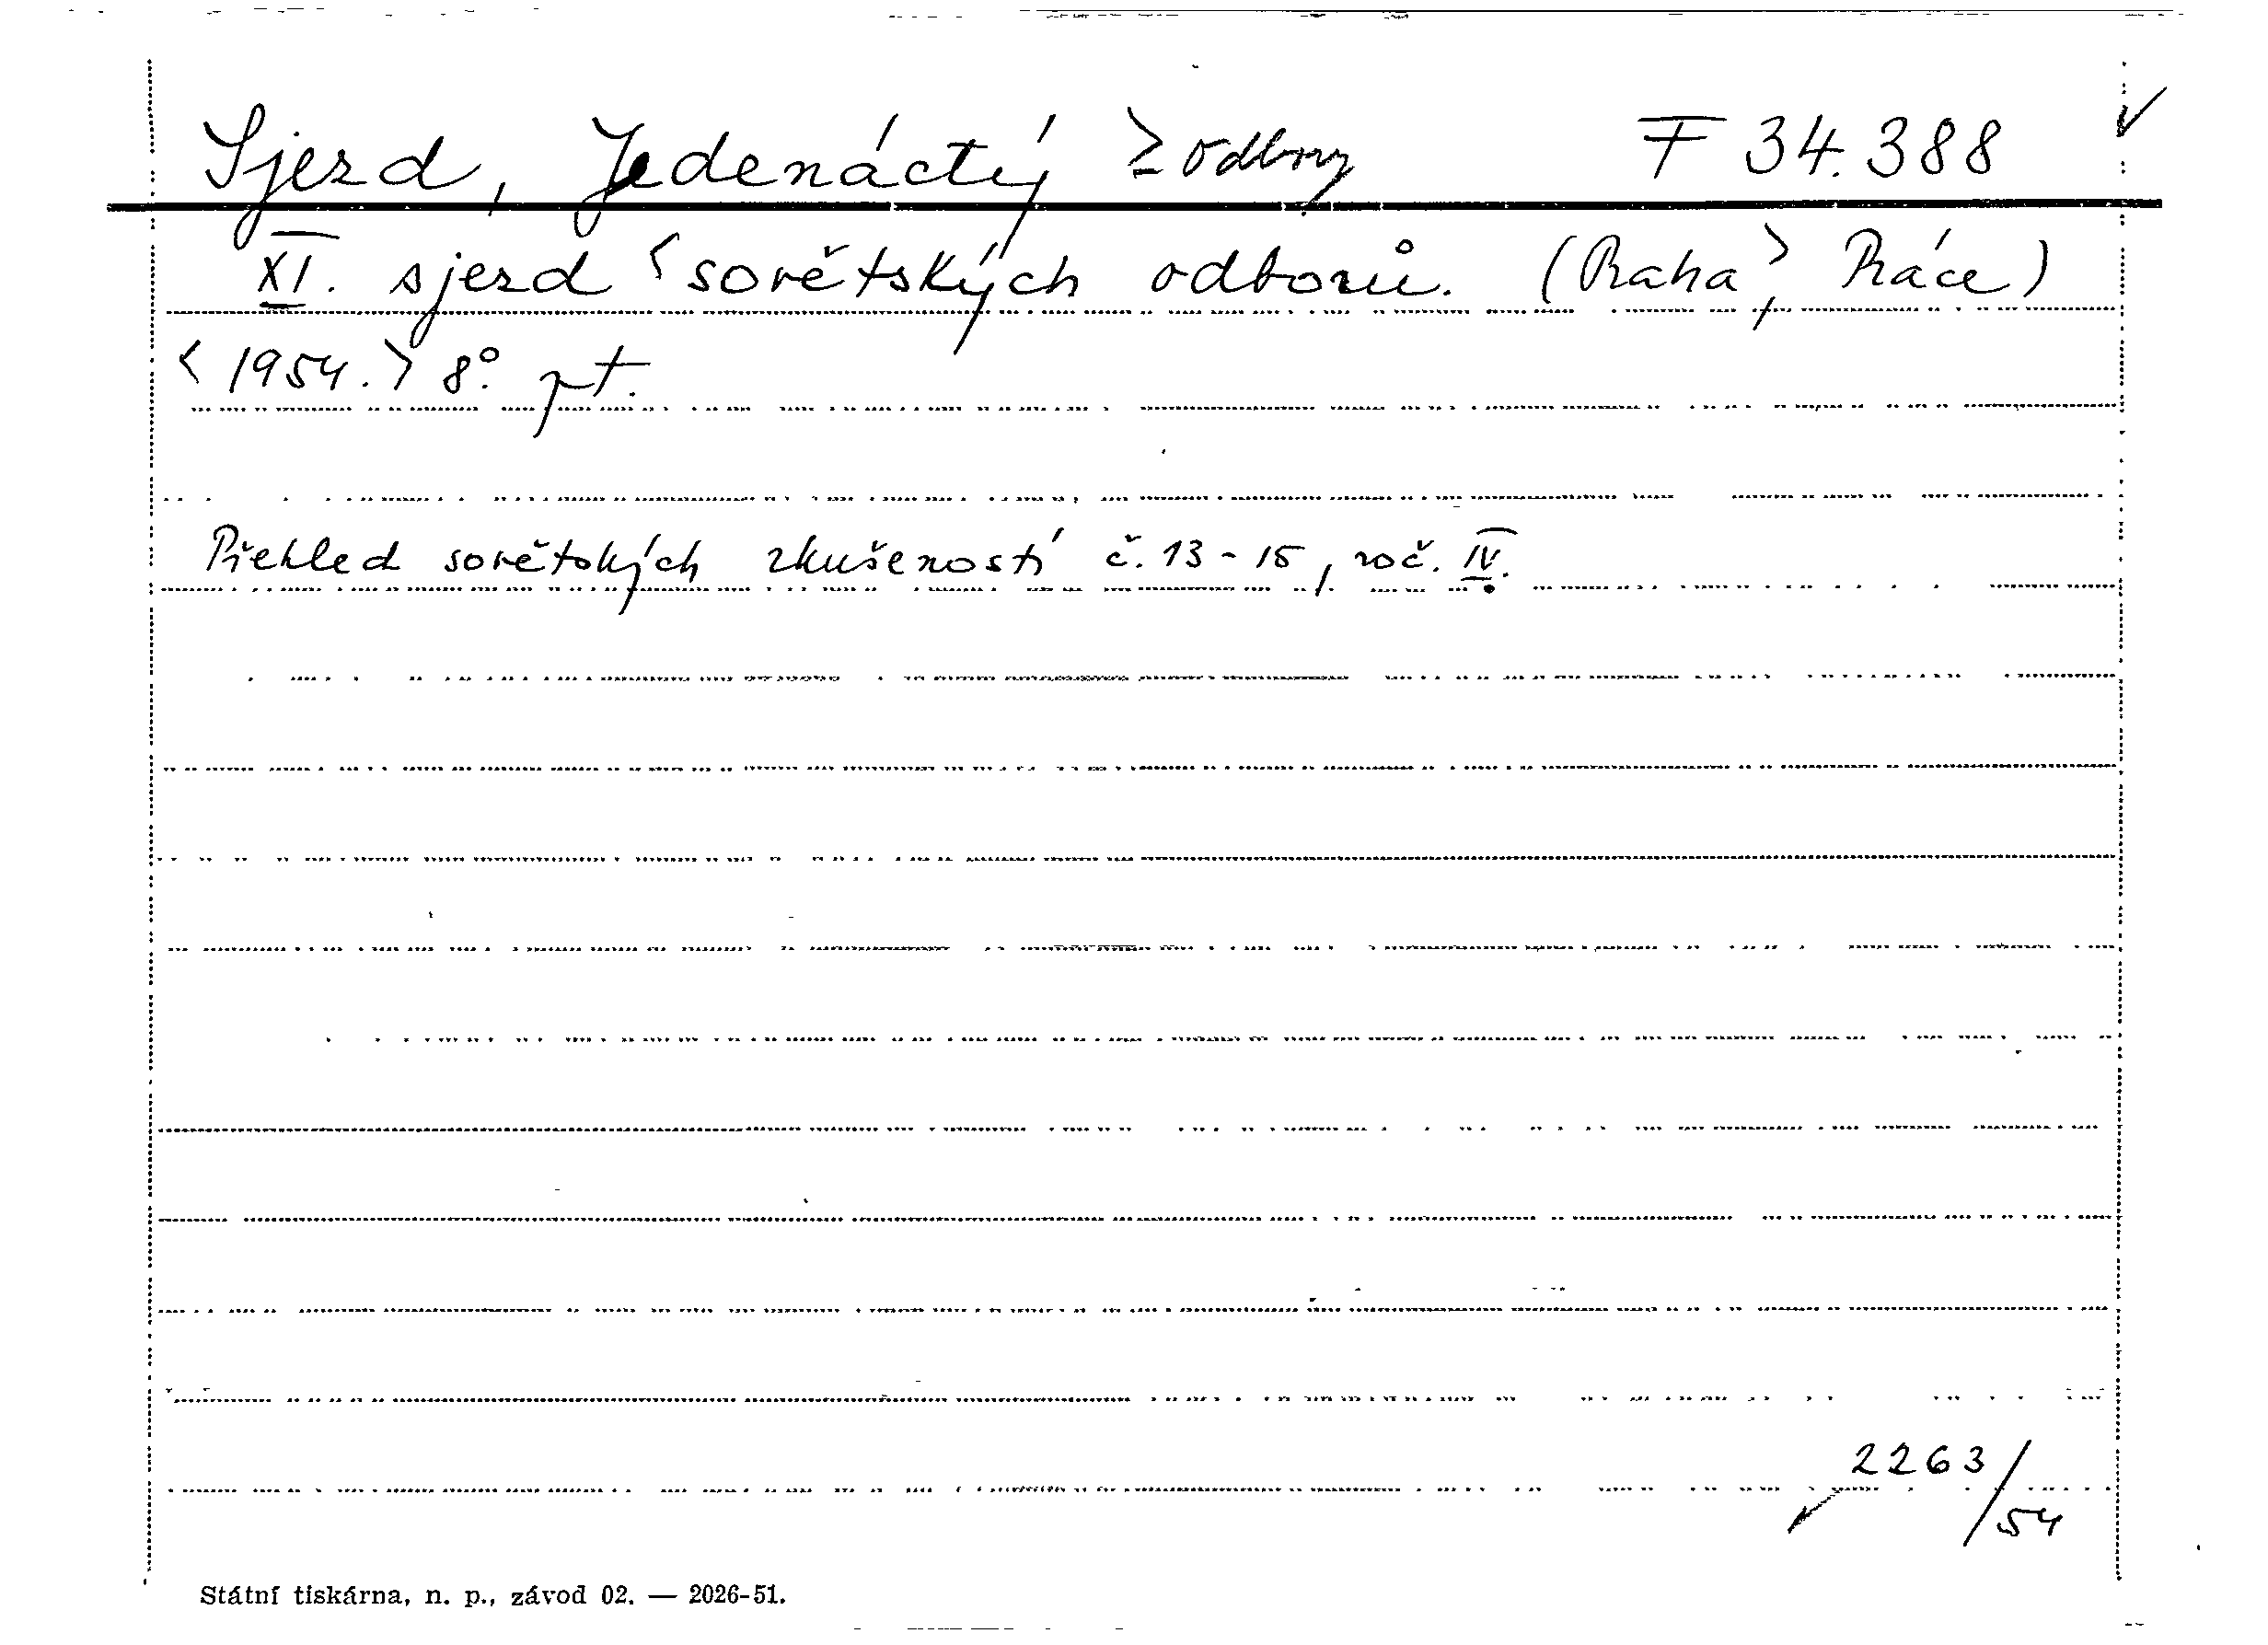 Sjezd, Jedenáctý > odbory F 34.388
XI. sjezd < sovětských odborů. (Praha > , Práce)
< 1954. > 8°. pt.
Přehled sovětských zkušeností č. 13 - 15, roč. IV.
2263/54
Státní tiskárna, n. p., závod 02. — 2026-51.